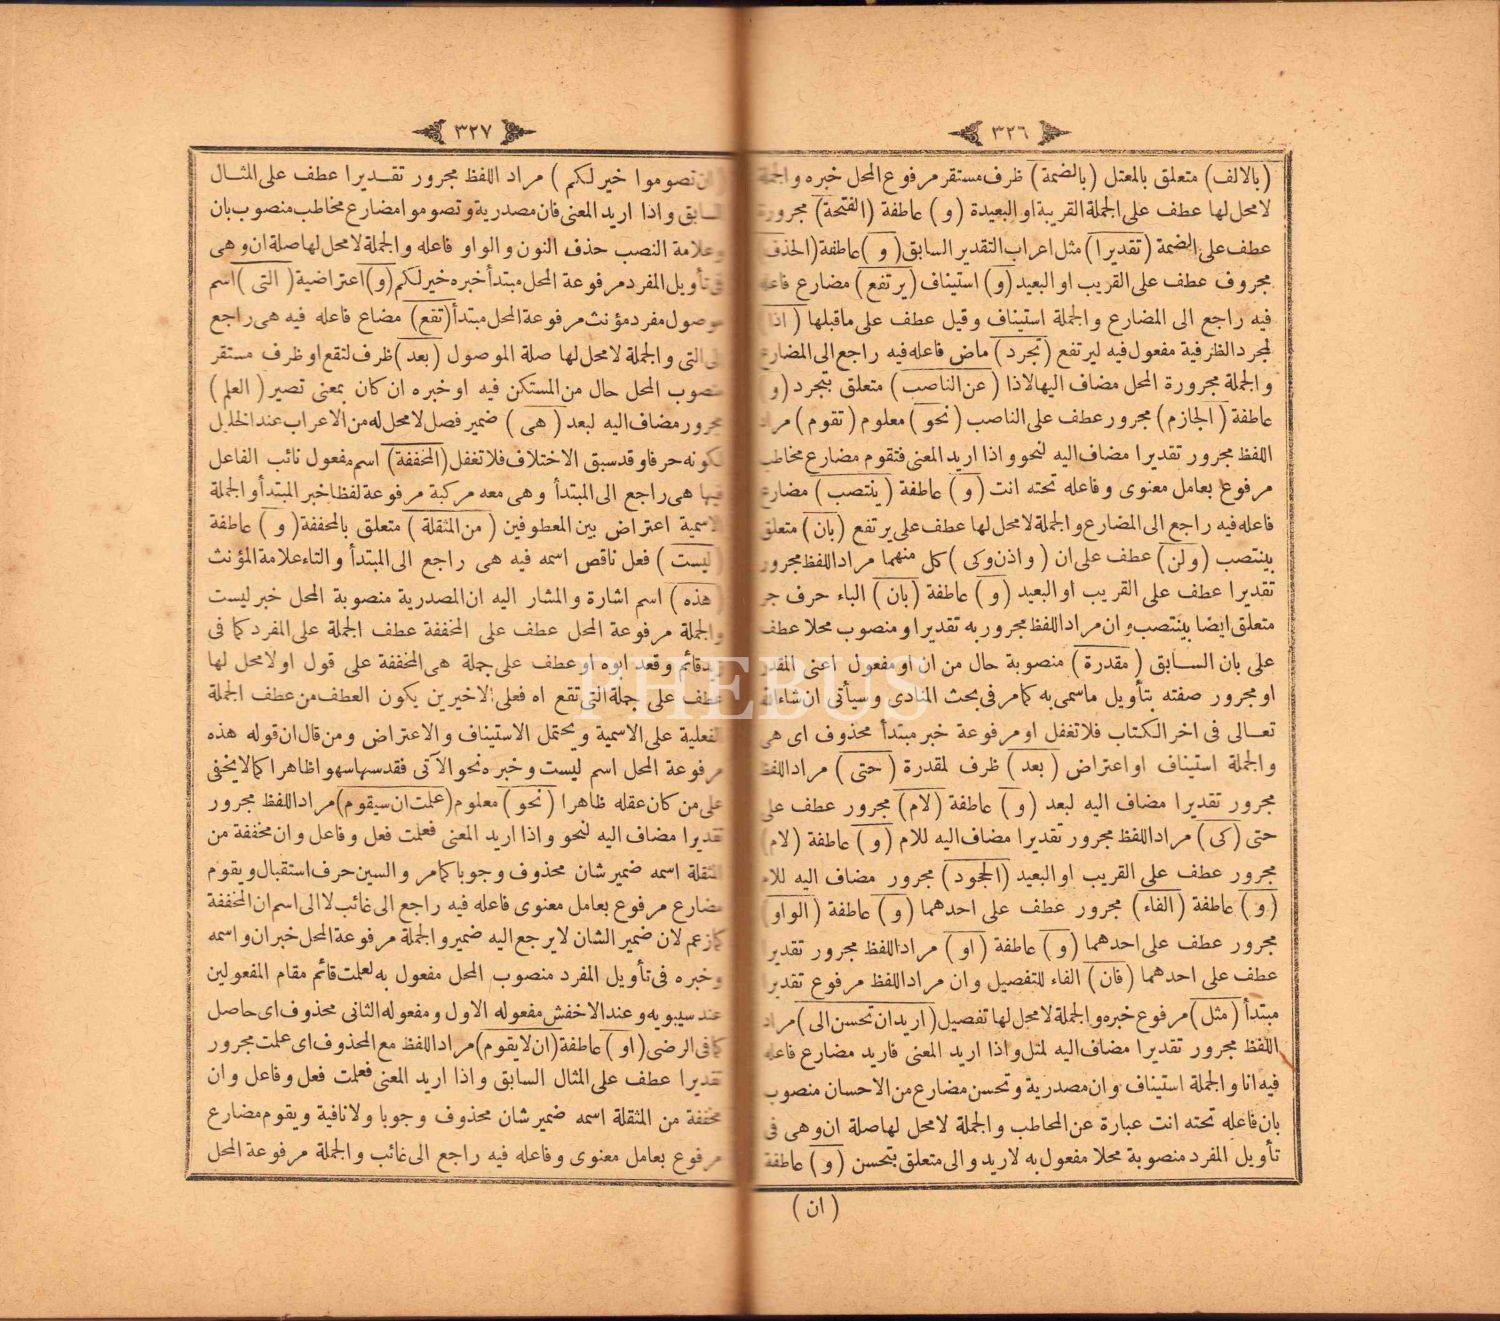 ٣٢٦
(بالالف) متعلق بالمعتل (بالضمة) ظرف مستقر مرفوع المحل خبره والجملة
لامحل لها عطف على الجملة القريبة او البعيدة (و) عاطفة (الفتحة) مجرورة
عطف على الضمة (تقديرا) مثل اعراب التقدير السابق (و) عاطفة (الحذف
مجروف عطف على القريب او البعيد (و) استيناف (يرتفع) مضارع فاعله
فيه راجع الى المضارع والجملة استيناف وقيل عطف على ماقبلها (اذا)
لمجرد الظرفية مفعول فيه ليرتفع (تجرد) ماض فاعله فيه راجع الى المضارع
والجملة مجرورة المحل مضاف اليها لاذا (عن الناصب) متعلق بتجرد (و)
عاطفة (الجازم) مجرور عطف على الناصب (نحو) معلوم (تقوم) مراد
اللفظ مجرور تقديرا مضاف اليه لنحو واذا اريد المعنى فتقوم مضارع مخاطب
مرفوع بعامل معنوى وفاعله تحته انت (و) عاطفة (ينتصب) مضارع
فاعله فيه راجع الى المضارع والجملة لامحل لها عطف على يرتفع (بان) متعلق
بينتصب (ولن) عطف على ان (واذن وكى) كل منهما مراد اللفظ مجرور
تقديرا عطف على القريب او البعيد (و) عاطفة (بان) الباء حرف جر
متعلق ايضا بينتصب وان مراد اللفظ مجرور به تقديرا ومنصوب محلا عطف
على بان السابق (مقدرة) منصوبة حال من ان او مفعول اعنى المقدر
او مجرور صفته بتأويل ماسمى به كمامر فى بحث المنادى وسيأتى ان شاء الله
تعالى فى اخر الكتاب فلاتغفل او مرفوعة خبر مبتدأ محذوف اى هى
والجملة استيناف او اعتراض (بعد) ظرف لمقدرة (حتى) مراد اللفظ
مجرور تقديرا مضاف اليه لبعد (و) عاطفة (لام) مجرور عطف على
حتى (كى) مراد اللفظ مجرور تقديرا مضاف اليه للام (و) عاطفة (لام)
مجرور عطف على القريب او البعيد (الجحود) مجرور مضاف اليه للام
(و) عاطفة (الفاء) مجرور عطف على احدهما (و) عاطفة (الواو)
مجرور عطف على احدهما (و) عاطفة (او) مراد اللفظ مجرور تقديرا
عطف على احدهما (فان) الفاء للتفصيل وان مراد اللفظ مرفوع تقديرا
مبتدأ (مثل) مرفوع خبره والجملة لامحل لها تفصيل (اريد ان تحسن الى) مراد
اللفظ مجرور تقديرا مضاف اليه لمثل واذا اريد المعنى فاريد مضارع فاعله
فيه انا والجملة استيناف وان مصدرية وتحسن مضارع من الاحسان منصوب
بان فاعله تحته انت عبارة عن المخاطب والجملة لامحل لها صلة ان وهى فى
تأويل المفرد منصوبة محلا مفعول به لاريد والى متعلق بتحسن (و) عاطفة
(ان)
٣٢٧
(ان تصوموا خير لكم) مراد اللفظ مجرور تقديرا عطف على المثال
السابق واذا اريد المعنى فان مصدرية وتصوموا مضارع مخاطب منصوب بان
وعلامة النصب حذف النون والواو فاعله والجملة لامحل لها صلة ان وهى
فى تأويل المفرد مرفوعة المحل مبتدأ خبره خير لكم (و) اعتراضية (التى) اسم
موصول مفرد مؤنث مرفوعة المحل مبتدأ (تقع) مضاع فاعله فيه هى راجع
الى التى والجملة لامحل لها صلة الموصول (بعد) ظرف لتقع او ظرف مستقر
منصوب المحل حال من المستكن فيه او خبره ان كان بمعنى تصير (العلم)
مجرور مضاف اليه لبعد (هى) ضمير فصل لامحل له من الاعراب عند الخليل
لكونه حرفا وقد سبق الاختلاف فلاتغفل (المخففة) اسم مفعول نائب الفاعل
فيها هى راجع الى المبتدأ وهى معه مركبة مرفوعة لفظا خبر المبتدأ والجملة
الاسمية اعتراض بين المعطوفين (من المثقلة) متعلق بالمخففة (و) عاطفة
(ليست) فعل ناقص اسمه فيه هى راجع الى المبتدأ والتاء علامة المؤنث
(هذه) اسم اشارة والمشار اليه ان المصدرية منصوبة المحل خبر ليست
والجملة مرفوعة المحل عطف على المخففة عطف الجملة على المفرد كما فى
زيد قائم وقعد ابوه او عطف على جملة هى المخففة على قول او لامحل لها
عطف على جملة التى تقع اه فعلى الاخيرين يكون العطف من عطف الجملة
الفعلية على الاسمية ويحتمل الاستيناف والاعتراض ومن قال ان قوله هذه
مرفوعة المحل اسم ليست وخبره نحو الآتى فقد سها سهوا ظاهرا كما لايخفى
على من كان عقله ظاهرا (نحو) معلوم (علمت ان سيقوم) مراد اللفظ مجرور
تقديرا مضاف اليه لنحو واذا اريد المعنى فعلمت فعل وفاعل وان مخففة من
المثقلة اسمه ضمير شان محذوف وجوبا كمامر والسين حرف استقبال ويقوم
مضارع مرفوع بعامل معنوى فاعله فيه راجع الى غائب لا الى اسم ان المخففة
كمازعم لان ضمير الشان لايرجع اليه ضمير والجملة مرفوعة المحل خبر ان واسمه
وخبره فى تأويل المفرد منصوب المحل مفعول به لعلمت قائم مقام المفعولين
عند سيبويه وعند الاخفش مفعوله الاول ومفعوله الثانى محذوف اى حاصل
كما فى الرضى (او) عاطفة (ان لايقوم) مراد اللفظ مع المحذوف اى علمت مجرور
تقديرا عطف على المثال السابق واذا اريد المعنى فعلمت فعل وفاعل وان
مخففة من المثقلة اسمه ضمير شان محذوف وجوبا ولا نافية ويقوم مضارع
مرفوع بعامل معنوى وفاعله فيه راجع الى غائب والجملة مرفوعة المحل
PHEBUS